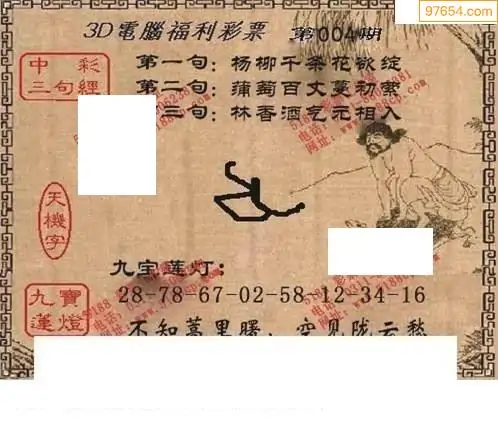 97654.com
3D電腦福利彩票 第004期
中彩
三句經
第一句：杨柳千条花欲绽
第二句：蒲萄百丈蔓初萦
第三句：林香酒气元相入
天機字
九宝莲灯：
九寶蓮燈
28-78-67-02-58-12-34-16
不知萬里曙，空见陇云愁